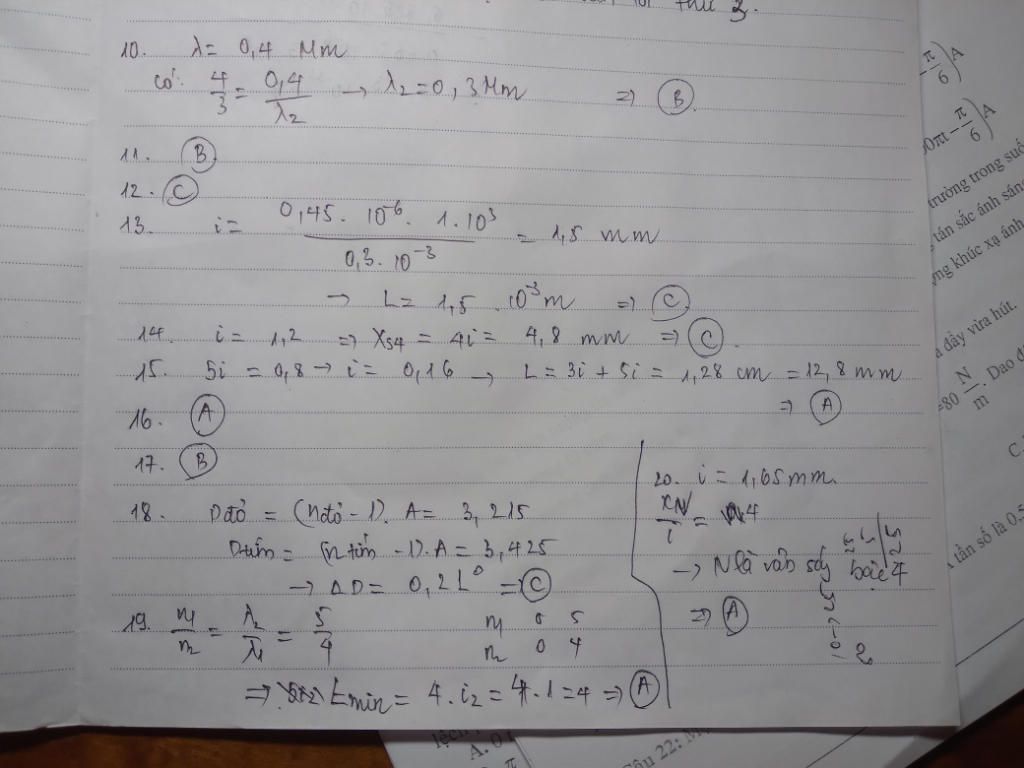 thứ 3.
10. λ = 0,4 Mm
có: 4/3 = 0,4/λ2 → λ2 = 0,3 Mm => B
11. B
12. C
13. i = 0,45. 10^-6. 1. 10^3 / 0,3. 10^-3 = 1,5 mm
→ L = 1,5 . 10^-3 m => C
14. i = 1,2 => Xs4 = 4i = 4,8 mm => C.
15. 5i = 0,8 → i = 0,16 → L = 3i + 5i = 1,28 cm = 12,8 mm
=> A
16. A
17. B
18. Dđỏ = (nđỏ - 1). A = 3,215
Dtím = (ntím - 1). A = 3,425
→ ΔD = 0,21° = C
19. n1/n2 = λ2/λ1 = 5/4
n1 0 5
n2 0 4
=> Lmin = 4. i2 = 4. 1 = 4 => A
20. i = 1,65 mm.
xN/i = 4
→ N là vân sáng bậc 4
=> A
-π/6)A
0πt - π/6)A
trường trong suố
tán sắc ánh sáng
ng khúc xạ ánh
dây vừa hút.
=80 N/m. Dao đ
C.
tần số là 0,5
lệch
A. 0
Câu 22: M